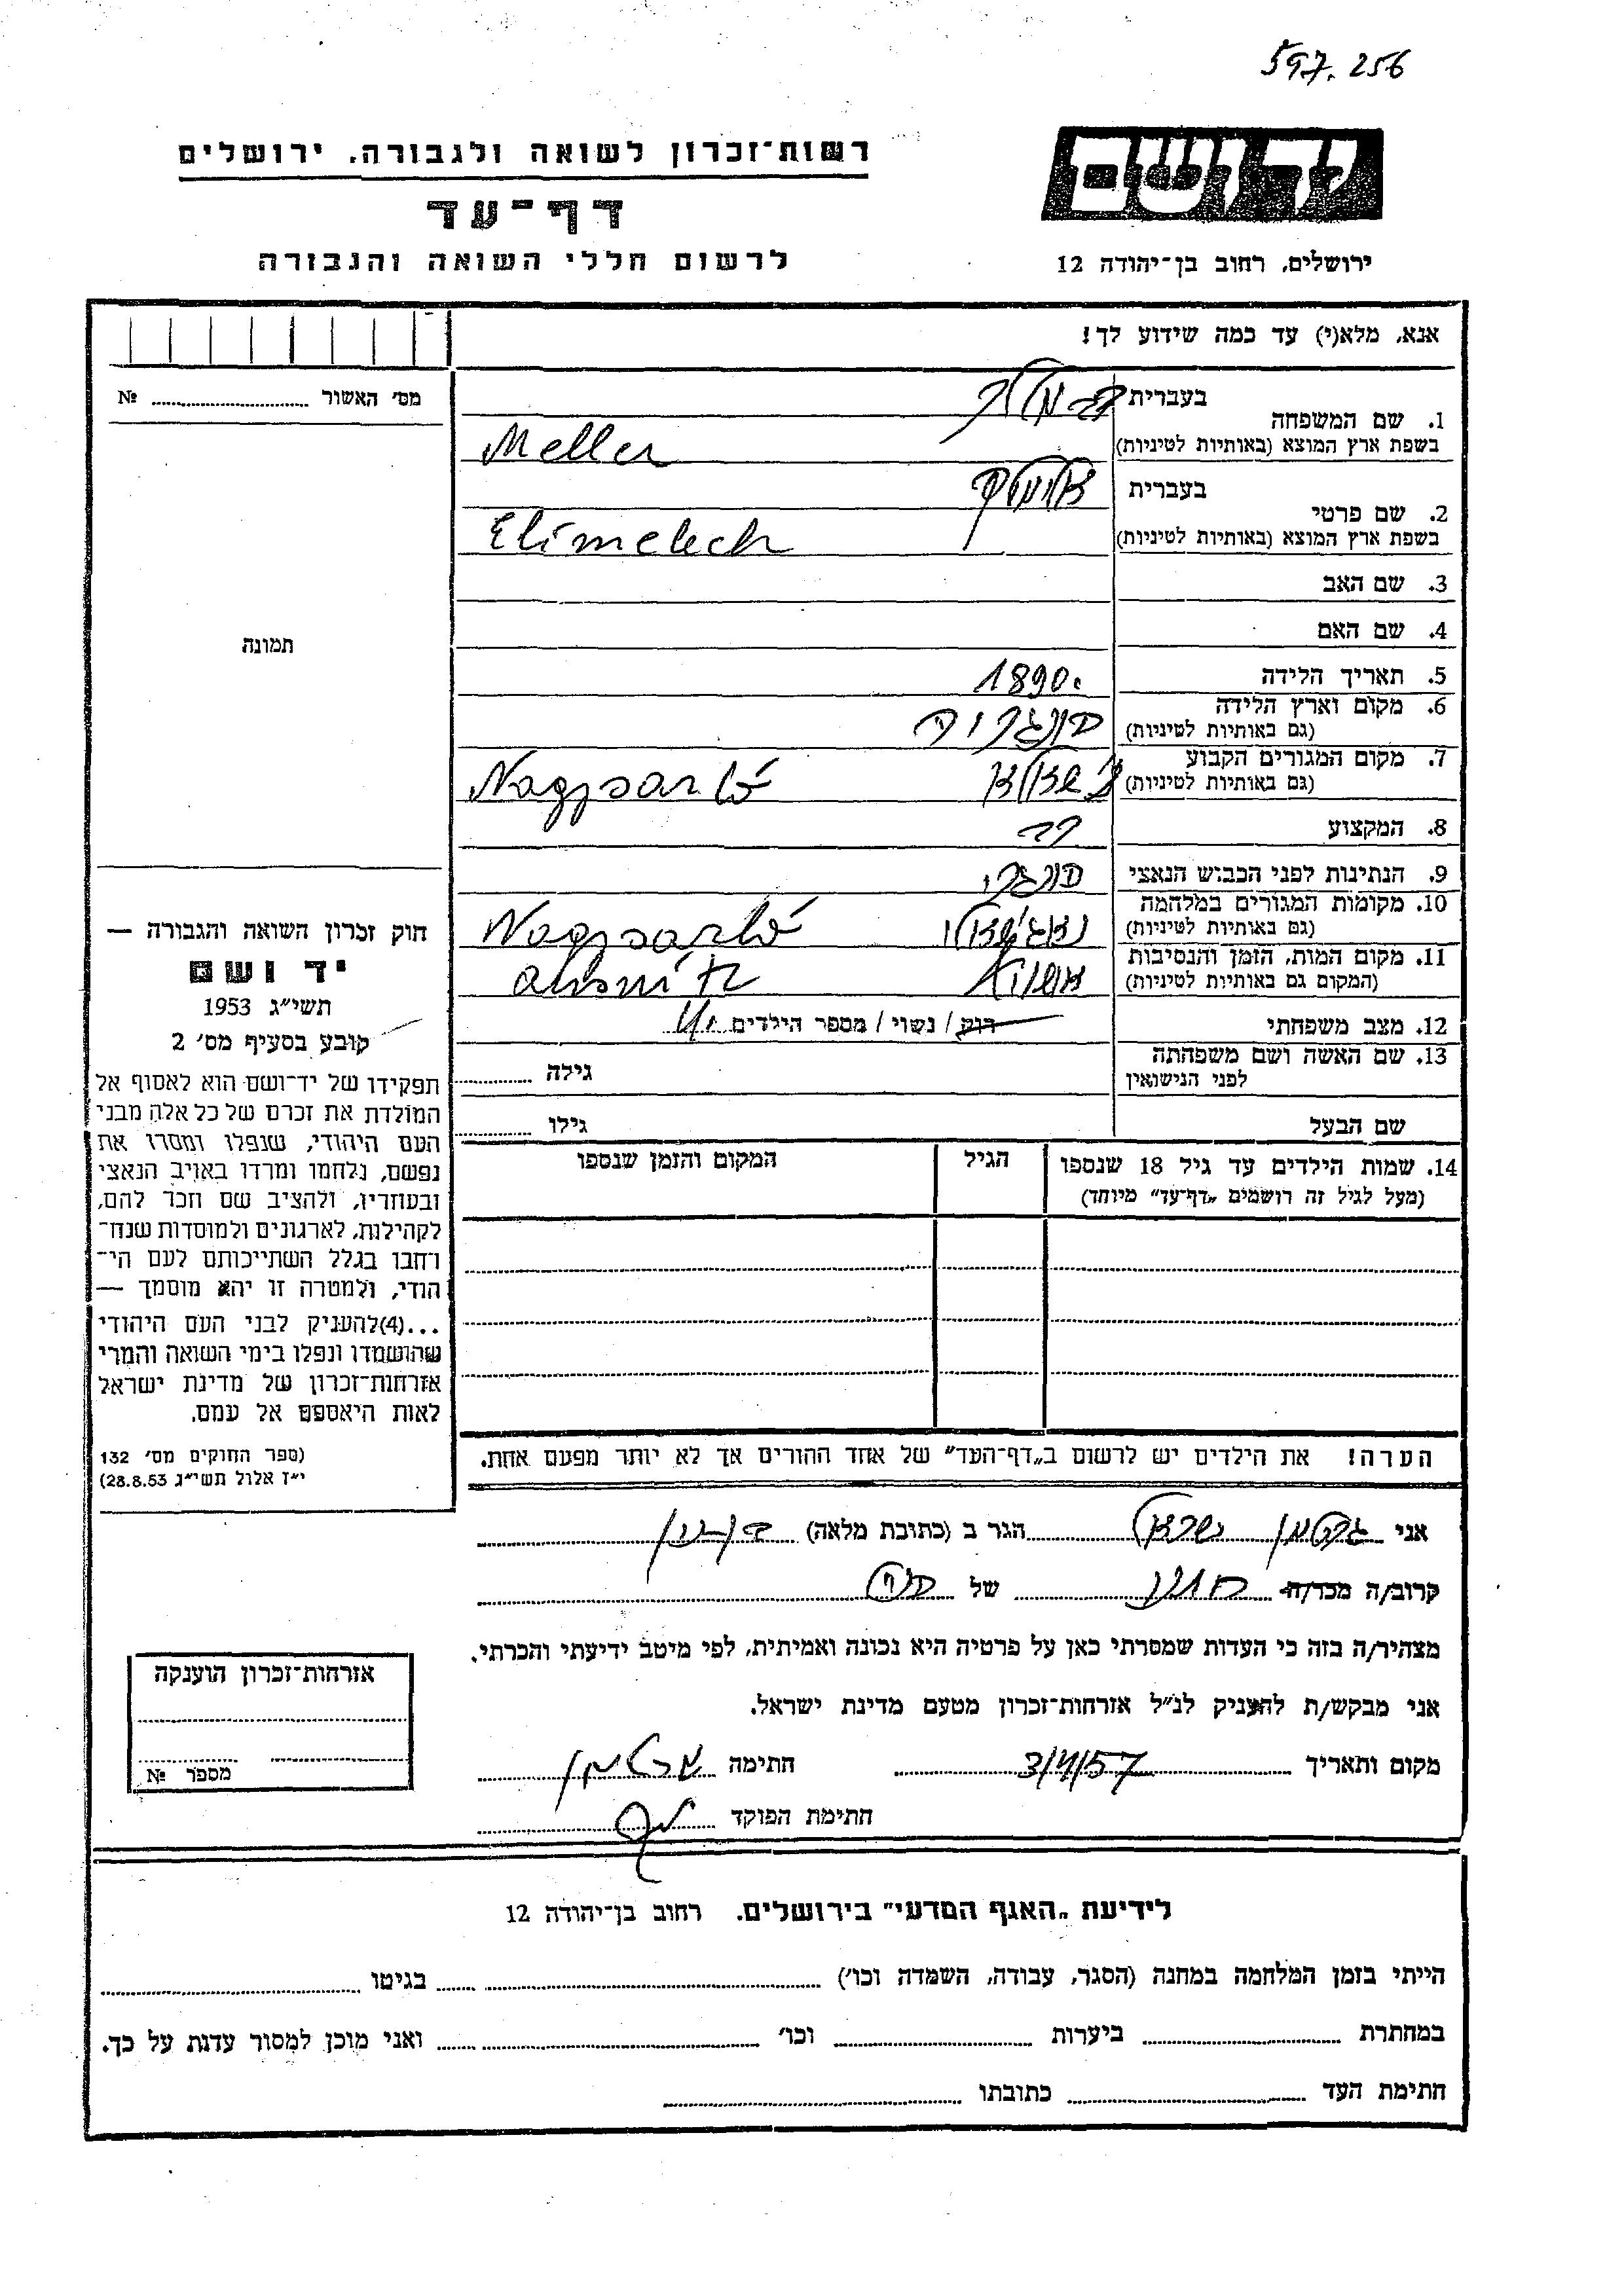 597.256
רשות־זכרון לשואה ולגבורה. ירושלים
דף־עד
לרשום חללי השואה והגבורה
יד ושם
ירושלים, רחוב בן־יהודה 12
אנא, מלא(י) עד כמה שידוע לך!
מס׳ האשור № 
1. שם המשפחה
בעברית
בשפת ארץ המוצא (באותיות לטיניות) Meller
2. שם פרטי
בעברית אלימלך
בשפת ארץ המוצא (באותיות לטיניות) Elimelech
3. שם האב
4. שם האם
5. תאריך הלידה 1890
6. מקום וארץ הלידה
(גם באותיות לטיניות) הונגריה
7. מקום המגורים הקבוע
(גם באותיות לטיניות) Nagysarló
8. המקצוע
9. הנתינות לפני הכבוש הנאצי הונגרי
10. מקומות המגורים במלחמה
(גם באותיות לטיניות) נאגישארלו Nagysarló
11. מקום המות, הזמן והנסיבות
(המקום גם באותיות לטיניות) אושויץ
12. מצב משפחתי רווק / נשוי / מספר הילדים
13. שם האשה ושם משפחתה
לפני הנישואין גילה
שם הבעל גילו
14. שמות הילדים עד גיל 18 שנספו
(מעל לגיל זה רושמים „דף־עד״ מיוחד)
הגיל
המקום והזמן שנספו
הערה! את הילדים יש לרשום ב„דף־העד״ של אחד ההורים אך לא יותר מפעם אחת.
תמונה
חוק זכרון השואה והגבורה —
יד ושם
תשי״ג 1953
קובע בסעיף מס׳ 2
תפקידו של יד־ושם הוא לאסוף אל
המולדת את זכרם של כל אלה מבני
העם היהודי, שנפלו ומסרו את
נפשם, נלחמו ומרדו באויב הנאצי
ובעוזריו, ולהציב שם וזכר להם,
לקהילות, לארגונים ולמוסדות שנח־
רבו בגלל השתייכותם לעם הי־
הודי, ולמטרה זו יהא מוסמך —
...(4)להעניק לבני העם היהודי
שהושמדו ונפלו בימי השואה והמרי
אזרחות־זכרון של מדינת ישראל
לאות היאספם אל עמם.
(ספר החוקים מס׳ 132
י״ז אלול תשי״ג 28.8.53)
אני הגר ב (כתובת מלאה)
קרוב/ה מכר/ה של
מצהיר/ה בזה כי העדות שמסרתי כאן על פרטיה היא נכונה ואמיתית, לפי מיטב ידיעתי והכרתי.
אני מבקש/ת להעניק לנ״ל אזרחות־זכרון מטעם מדינת ישראל.
מקום ותאריך חתימה
חתימת הפוקד
אזרחות־זכרון הוענקה
מספר №
לידיעת „האגף המדעי״ בירושלים. רחוב בן־יהודה 12
הייתי בזמן המלחמה במחנה (הסגר, עבודה, השמדה וכו׳) בגיטו
במחתרת ביערות וכו׳ ואני מוכן למסור עדות על כך.
חתימת העד כתובתו